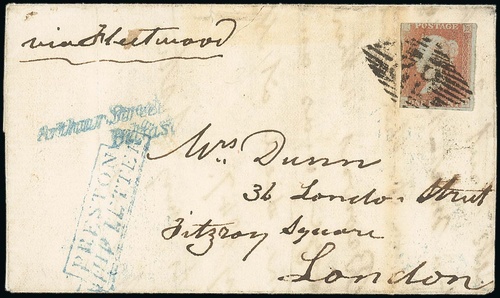 via Fleetwood
POSTAGE
Arthur Street
Belfast
PRESTON
SHIP LETTER
Mrs Dunn
36 London Street
Fitzroy Square
London